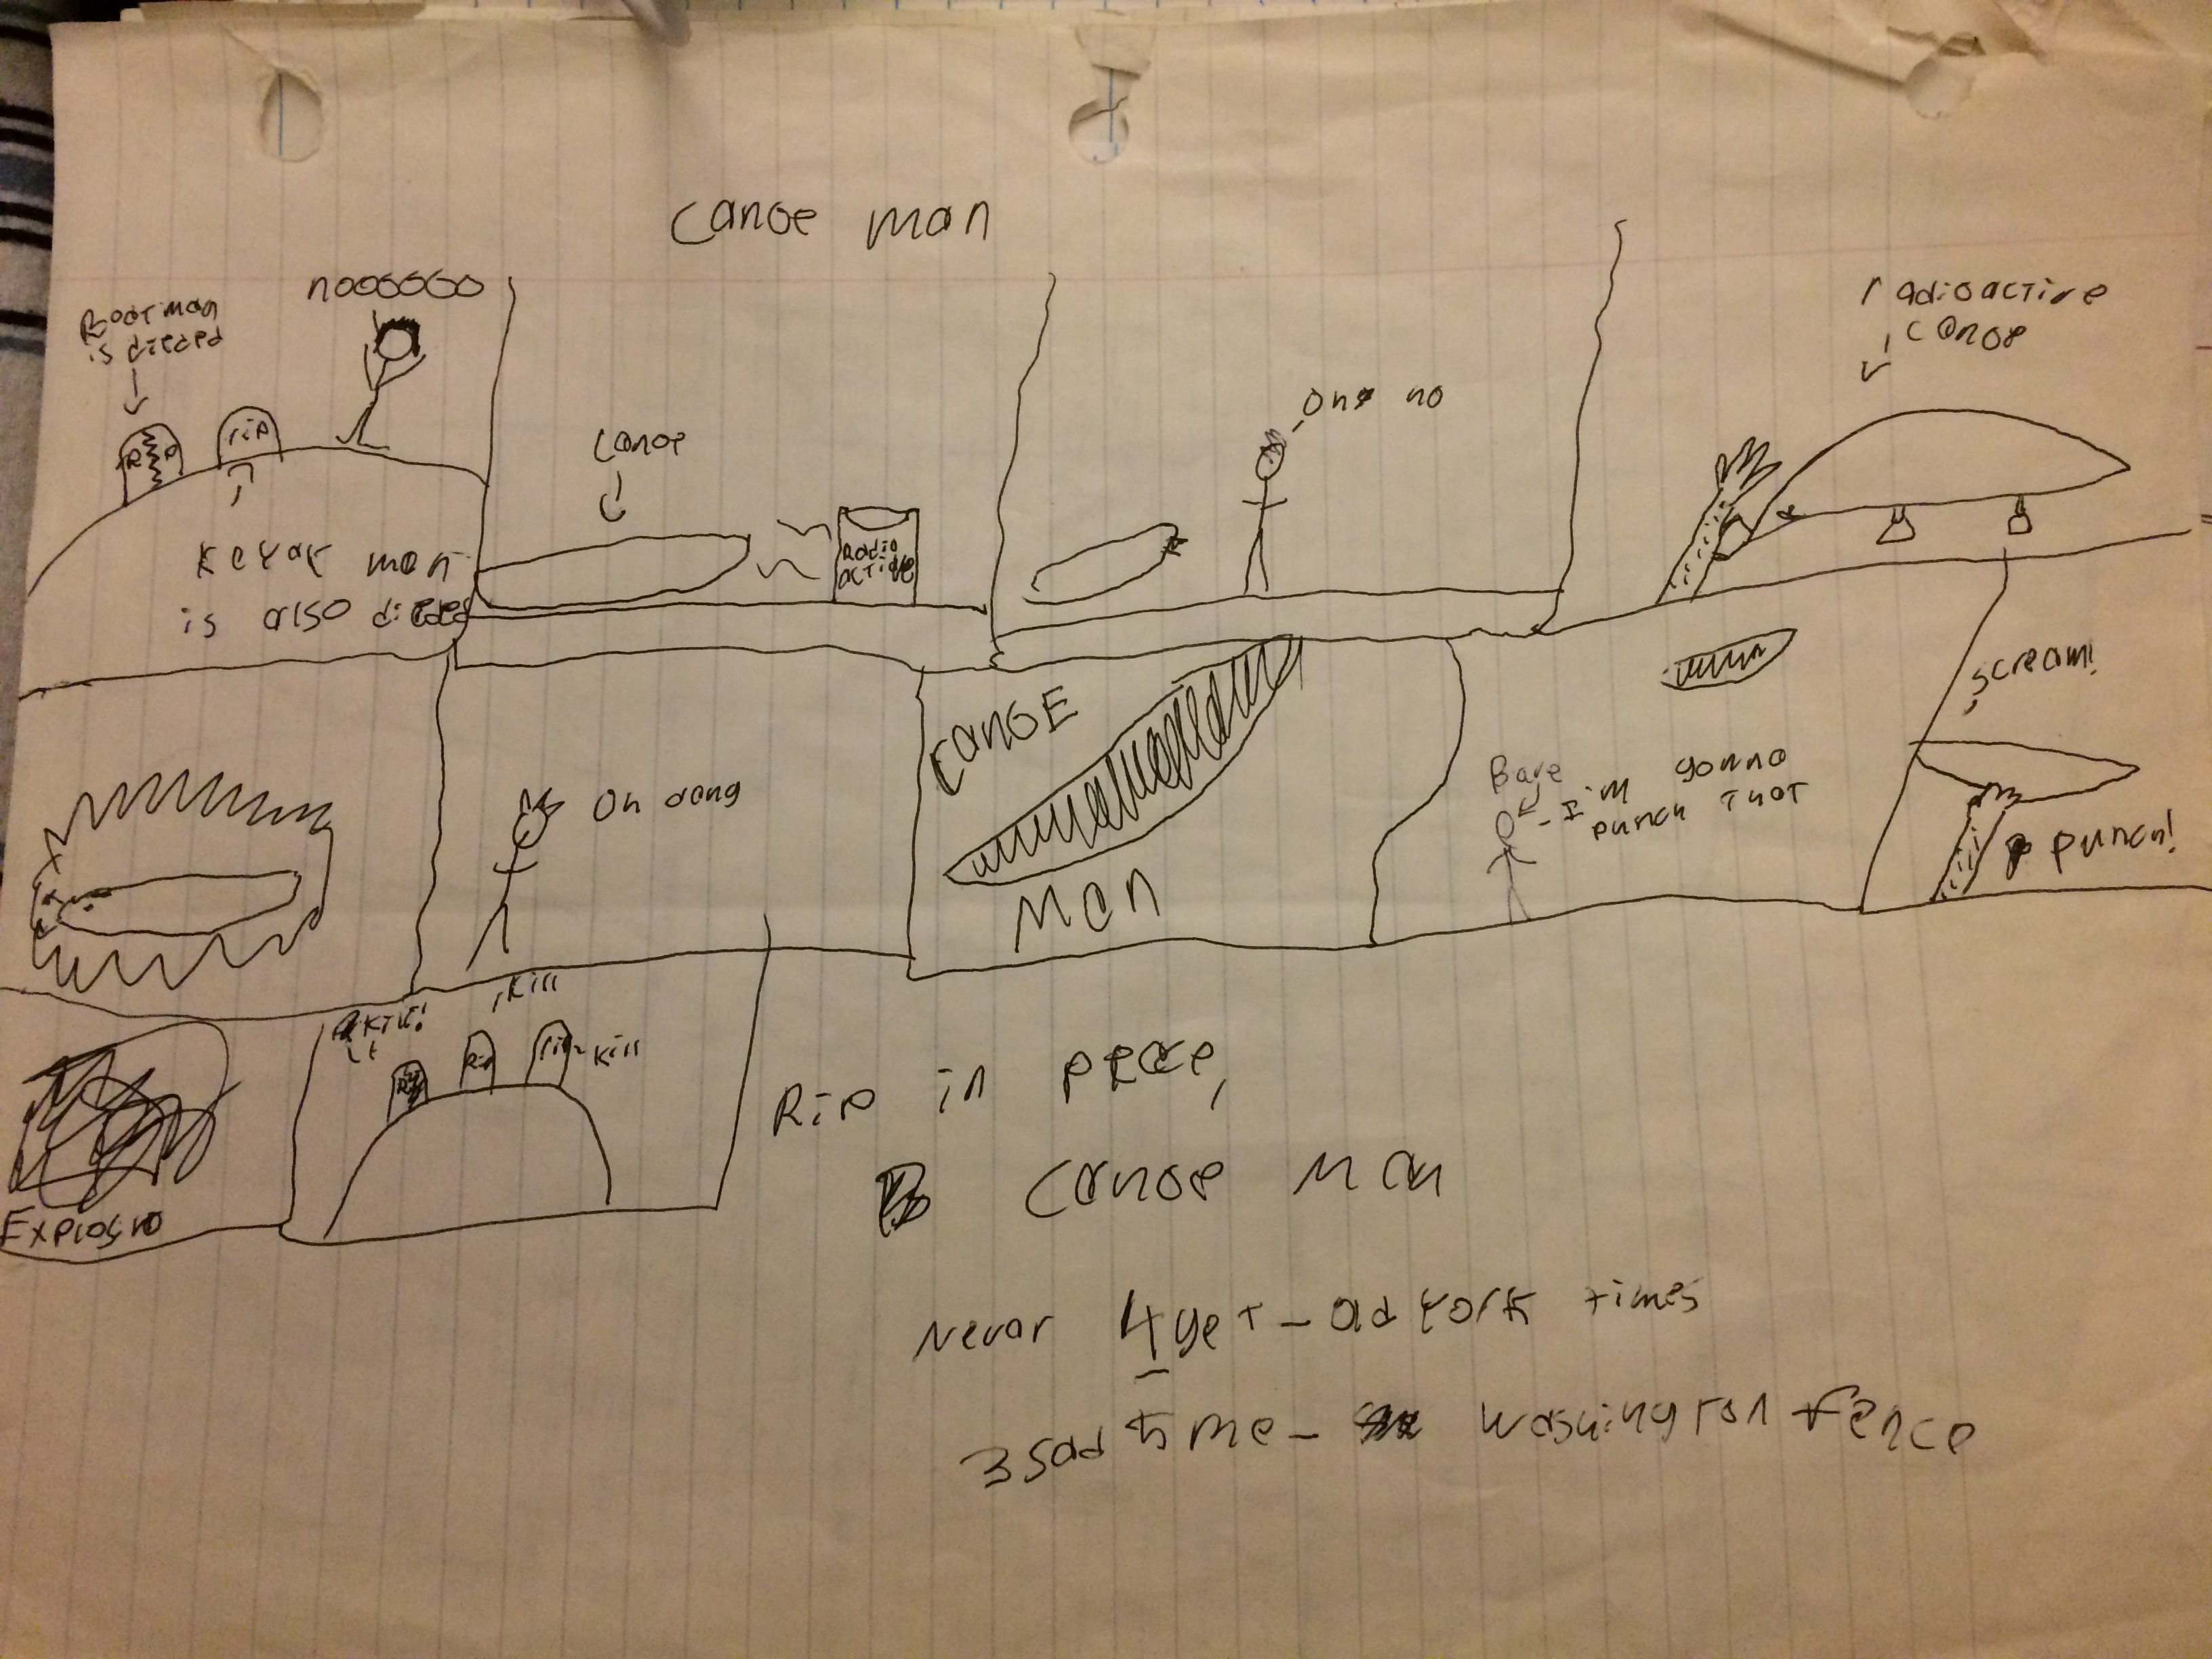 canoe man
Boat man
is dieded
nooooooo
R P
rip
Keyak man
is also dieded
canoe
Radio
active
oh no
radioactive
canoe
oh dang
canoE
Man
Bave
I'm gonna
punch that
scream!
punch!
Explosn
kill!
kill
kill
Rip
rip
Rip in peace,
canoe man
Never 4get - old York times
3 sad 5 me - washington fence